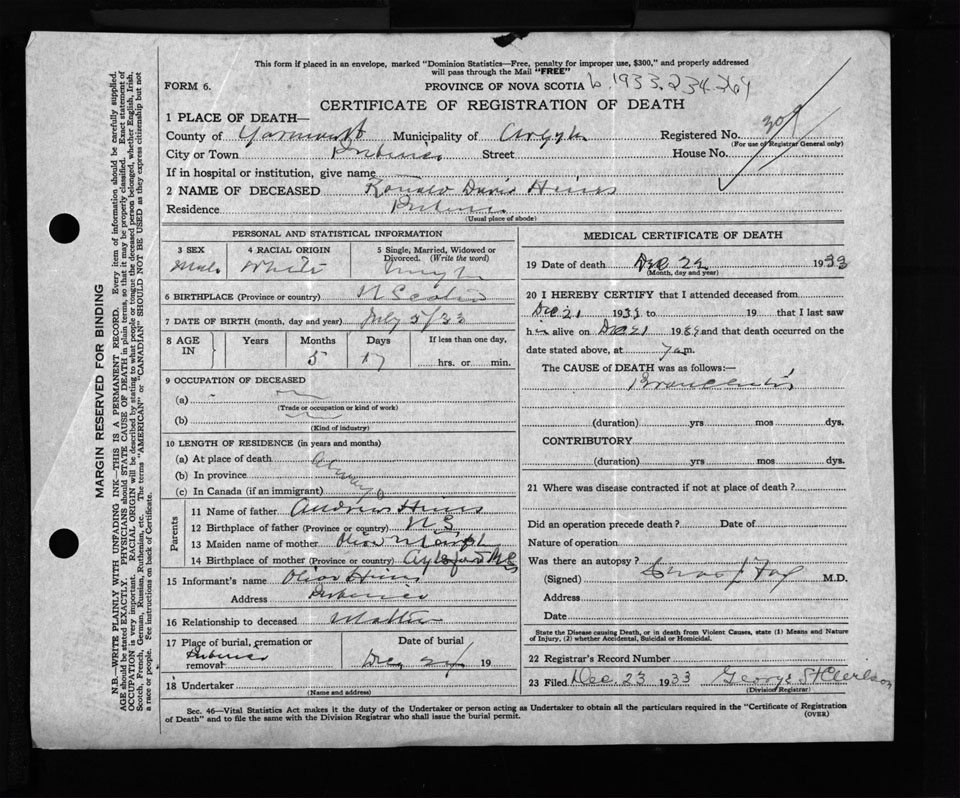 This form if placed in an envelope, marked "Dominion Statistics—Free, penalty for improper use, $300," and properly addressed
will pass through the Mail "FREE"
FORM 6.
PROVINCE OF NOVA SCOTIA 1933.234.264
CERTIFICATE OF REGISTRATION OF DEATH
1 PLACE OF DEATH—
County of Yarmouth Municipality of Argyle Registered No. 309
(For use of Registrar General only)
City or Town Pubnico Street House No.
If in hospital or institution, give name
2 NAME OF DECEASED Ronald David Hines
Residence Pubnico
(Usual place of abode)
PERSONAL AND STATISTICAL INFORMATION
3 SEX 4 RACIAL ORIGIN 5 Single, Married, Widowed or Divorced. (Write the word)
Male White Single
6 BIRTHPLACE (Province or country) N Scotia
7 DATE OF BIRTH (month, day and year) July 5/33
8 AGE IN Years Months Days If less than one day,
5 17 hrs. or min.
9 OCCUPATION OF DECEASED
(a)
(Trade or occupation or kind of work)
(b)
(Kind of industry)
10 LENGTH OF RESIDENCE (in years and months)
(a) At place of death
(b) In province always
(c) In Canada (if an immigrant)
Parents
11 Name of father Andrew Hines
12 Birthplace of father (Province or country) N S
13 Maiden name of mother Olive
14 Birthplace of mother (Province or country) N S
15 Informant's name Olive Hines
Address Pubnico
16 Relationship to deceased Mother
17 Place of burial, cremation or removal Date of burial
Pubnico Dec 24 19
18 Undertaker
(Name and address)
MEDICAL CERTIFICATE OF DEATH
19 Date of death Dec 22 1933
(Month, day and year)
20 I HEREBY CERTIFY that I attended deceased from
Dec 21 1933 to 19 that I last saw
h alive on Dec 21 1933 and that death occurred on the
date stated above, at 7 a.m.
The CAUSE of DEATH was as follows:—
Bronchitis
(duration) yrs mos dys.
CONTRIBUTORY
(duration) yrs mos dys.
21 Where was disease contracted if not at place of death?
Did an operation precede death? Date of
Nature of operation
Was there an autopsy?
(Signed) M.D.
Address
Date
State the Disease causing Death, or in death from Violent Causes, state (1) Means and Nature of Injury, (2) whether Accidental, Suicidal or Homicidal.
22 Registrar's Record Number
23 Filed Dec 23 1933 George
(Division Registrar)
Sec. 46—Vital Statistics Act makes it the duty of the Undertaker or person acting as Undertaker to obtain all the particulars required in the "Certificate of Registration
of Death" and to file the same with the Division Registrar who shall issue the burial permit. (OVER)
MARGIN RESERVED FOR BINDING
N.B.—WRITE PLAINLY WITH UNFADING INK—THIS IS A PERMANENT RECORD. Every item of information should be carefully supplied.
AGE should be stated EXACTLY. PHYSICIANS should STATE CAUSE OF DEATH in plain terms, so that it may be properly classified. Exact statement of
OCCUPATION is very important. RACIAL ORIGIN will be described by stating to what people or tongue the deceased person belonged, whether English, Irish,
Scotch, French, German, Russian, Ruthenian, etc. The terms "AMERICAN" or "CANADIAN" SHOULD NOT BE USED as they express citizenship but not
a race or people. See instructions on back of Certificate.